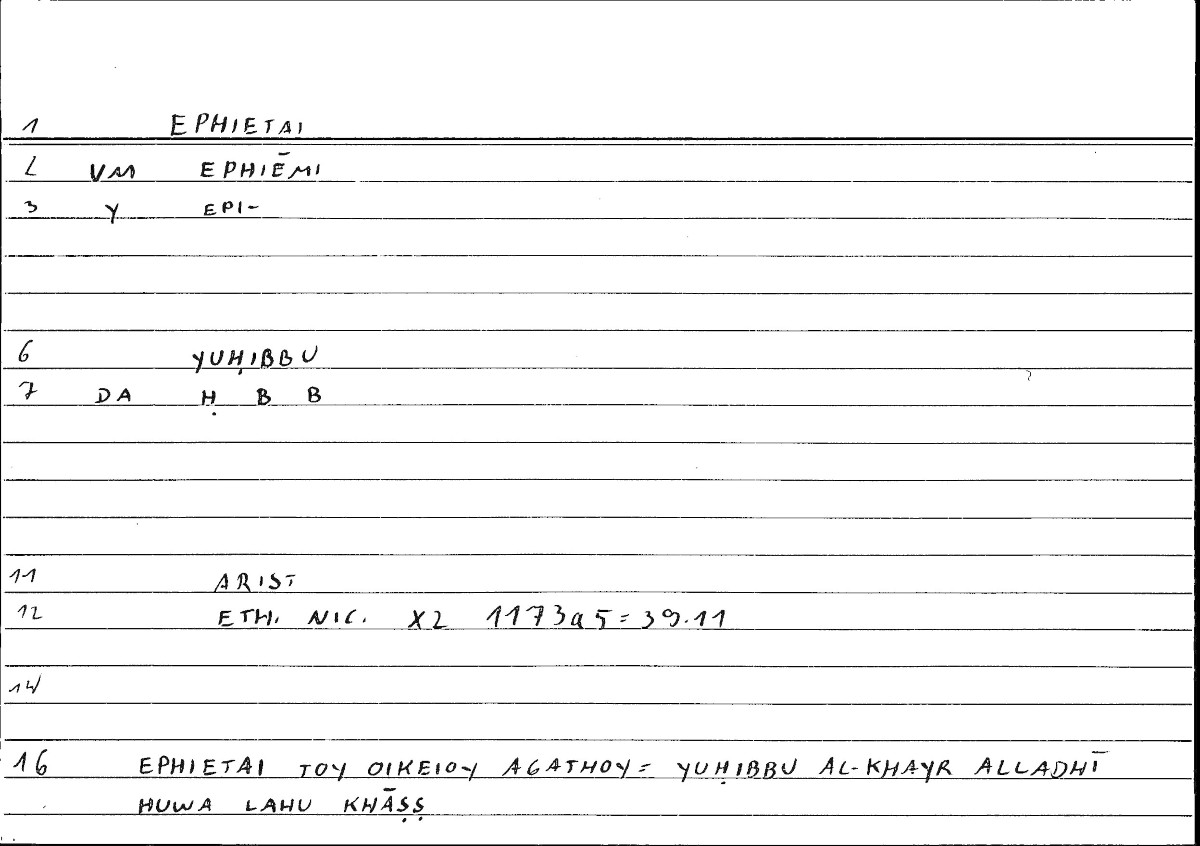 1 EPHIETAI
2 VM EPHIĒMI
3 Y EPI-
6 YUḤIBBU
7 DA Ḥ B B
11 ARIST
12 ETH. NIC. X2 1173a5=39.11
14
16 EPHIETAI TOY OIKEIOY AGATHOY= YUḤIBBU AL-KHAYR ALLADHĪ
HUWA LAHU KHĀṢṢ